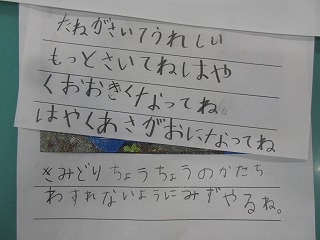 たねがさいてうれしい
もっとさいてねはや
くおおきくなってね
はやくあさがおになってね
きみどりちょうちょうのかたち
わすれないようにみずやるね。